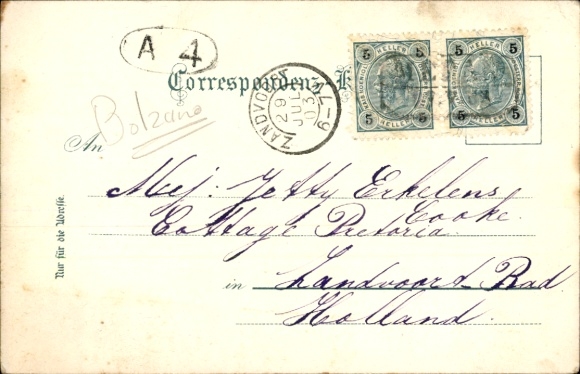 A 4
Correspondenz-K
ZANDVOORT
29 JUL 03
7-9
5 HELLER 5
5 HELLER 5
5 HELLER 5
5 HELLER 5
Bolzano
An
Mej: Jetty Erkelens
Cooke.
Cottage Pretoria.
in Zandvoort-Bad
Holland.
Nur für die Adresse.